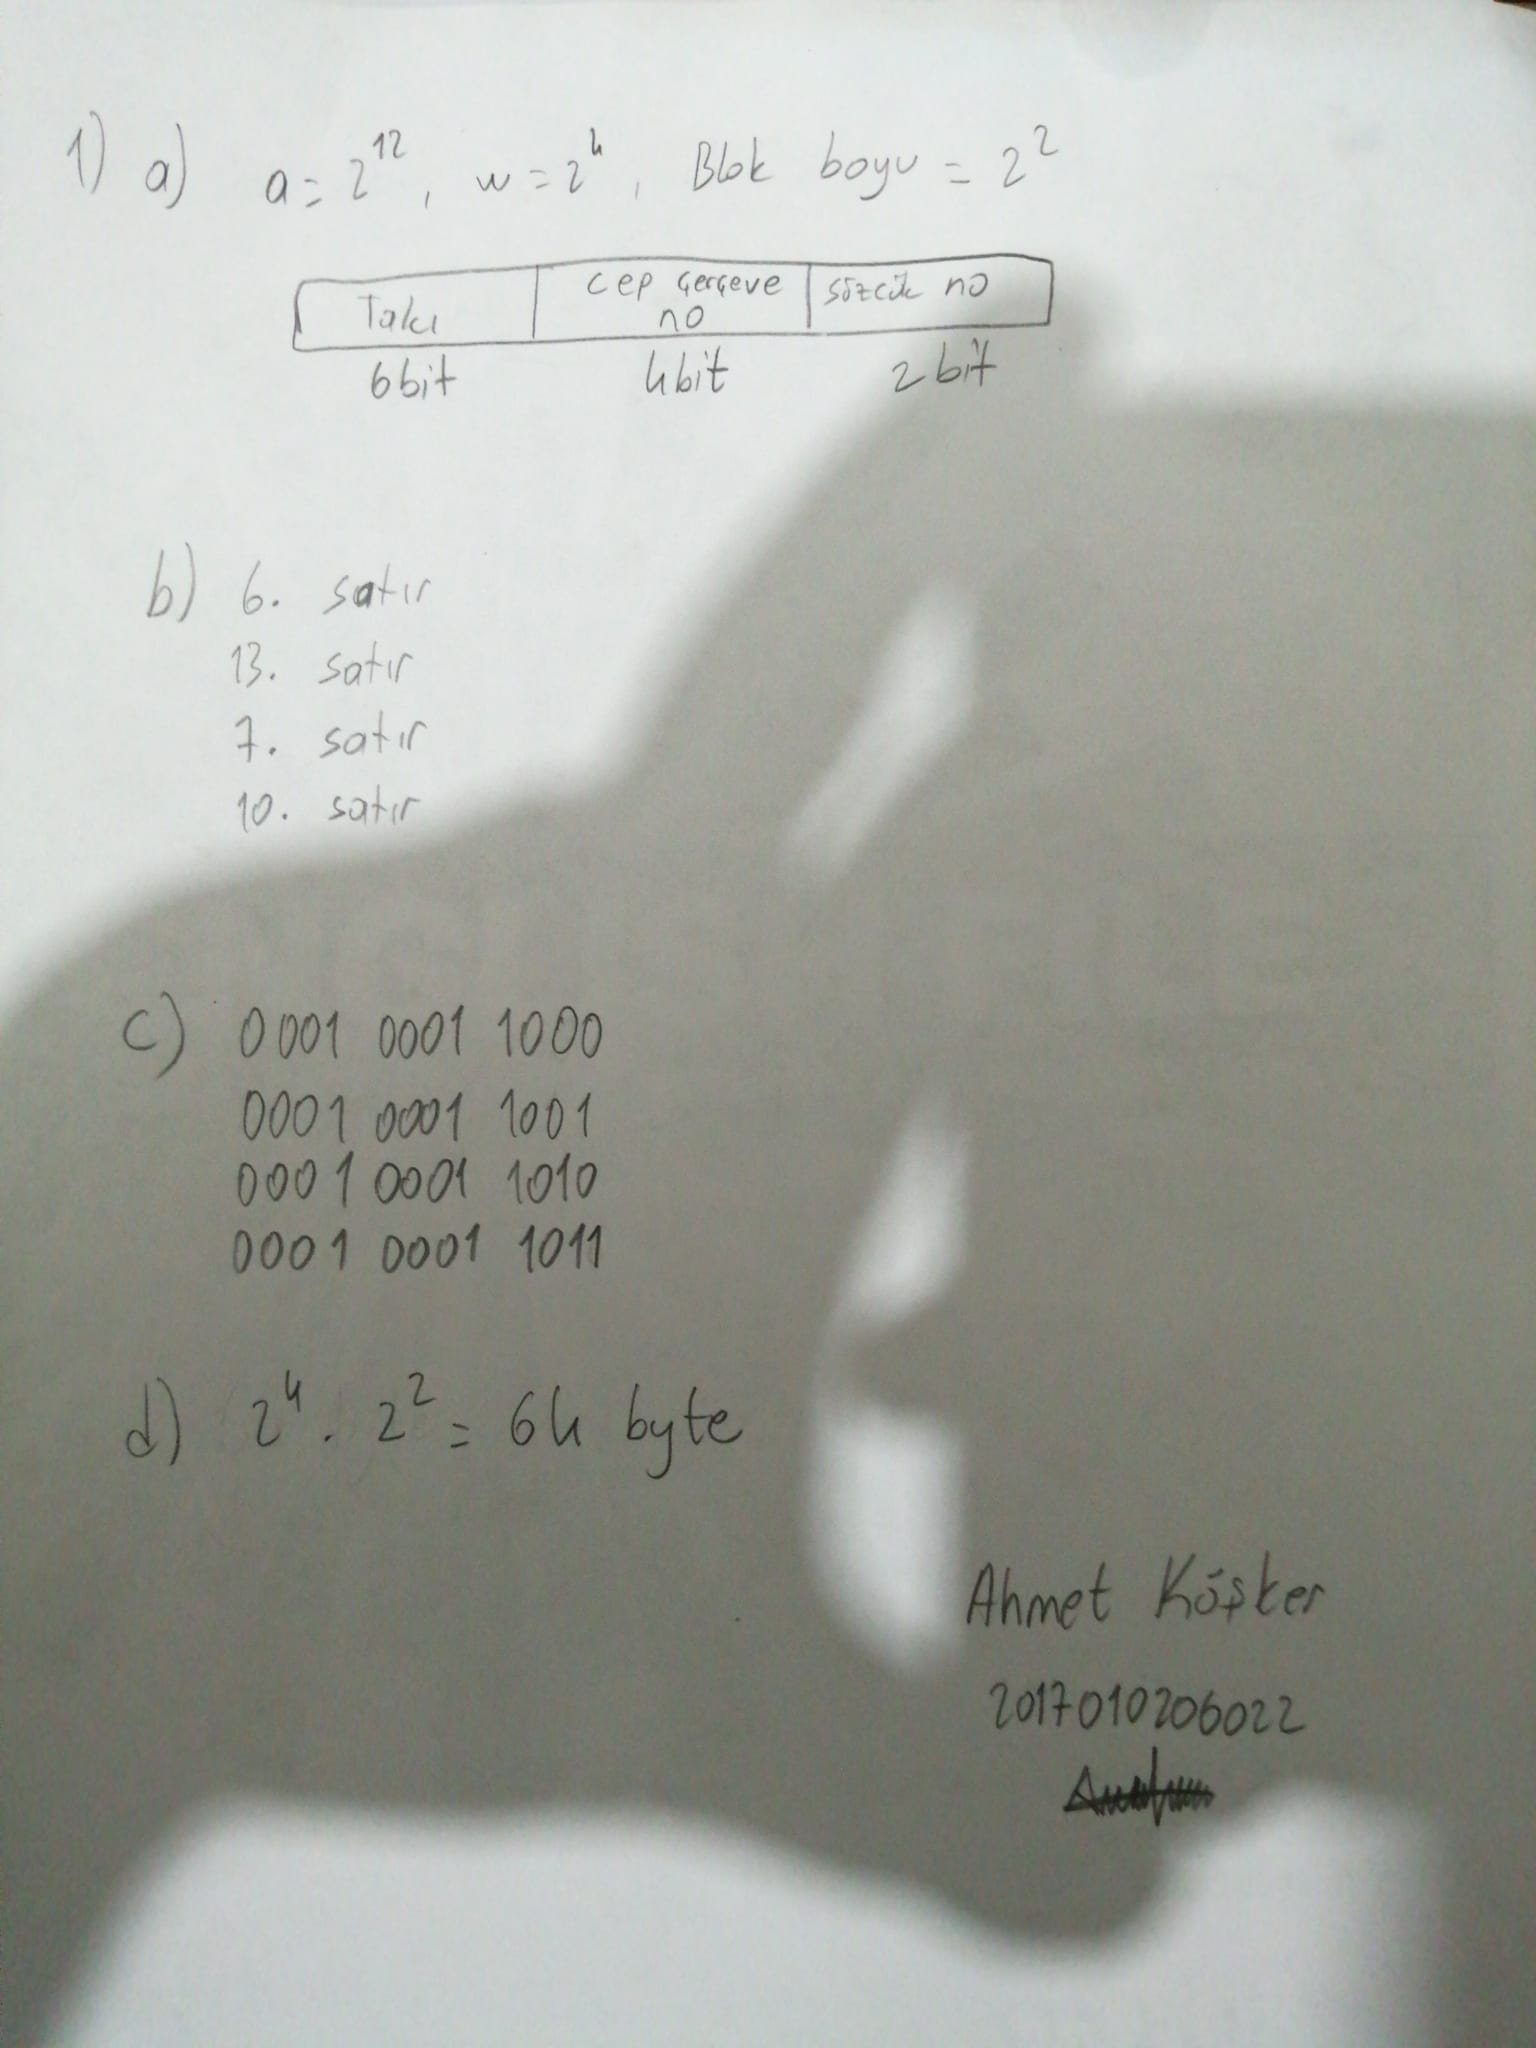 1) a) a = 2^12, w = 2^4, Blok boyu = 2^2
Takı cep çerçeve no sözcük no
6bit 4bit 2 bit
b) 6. satır
13. satır
7. satır
10. satır
c) 0001 0001 1000
0001 0001 1001
0001 0001 1010
0001 0001 1011
d) 2^4 . 2^2 = 64 byte
Ahmet Köşker
2017010206022